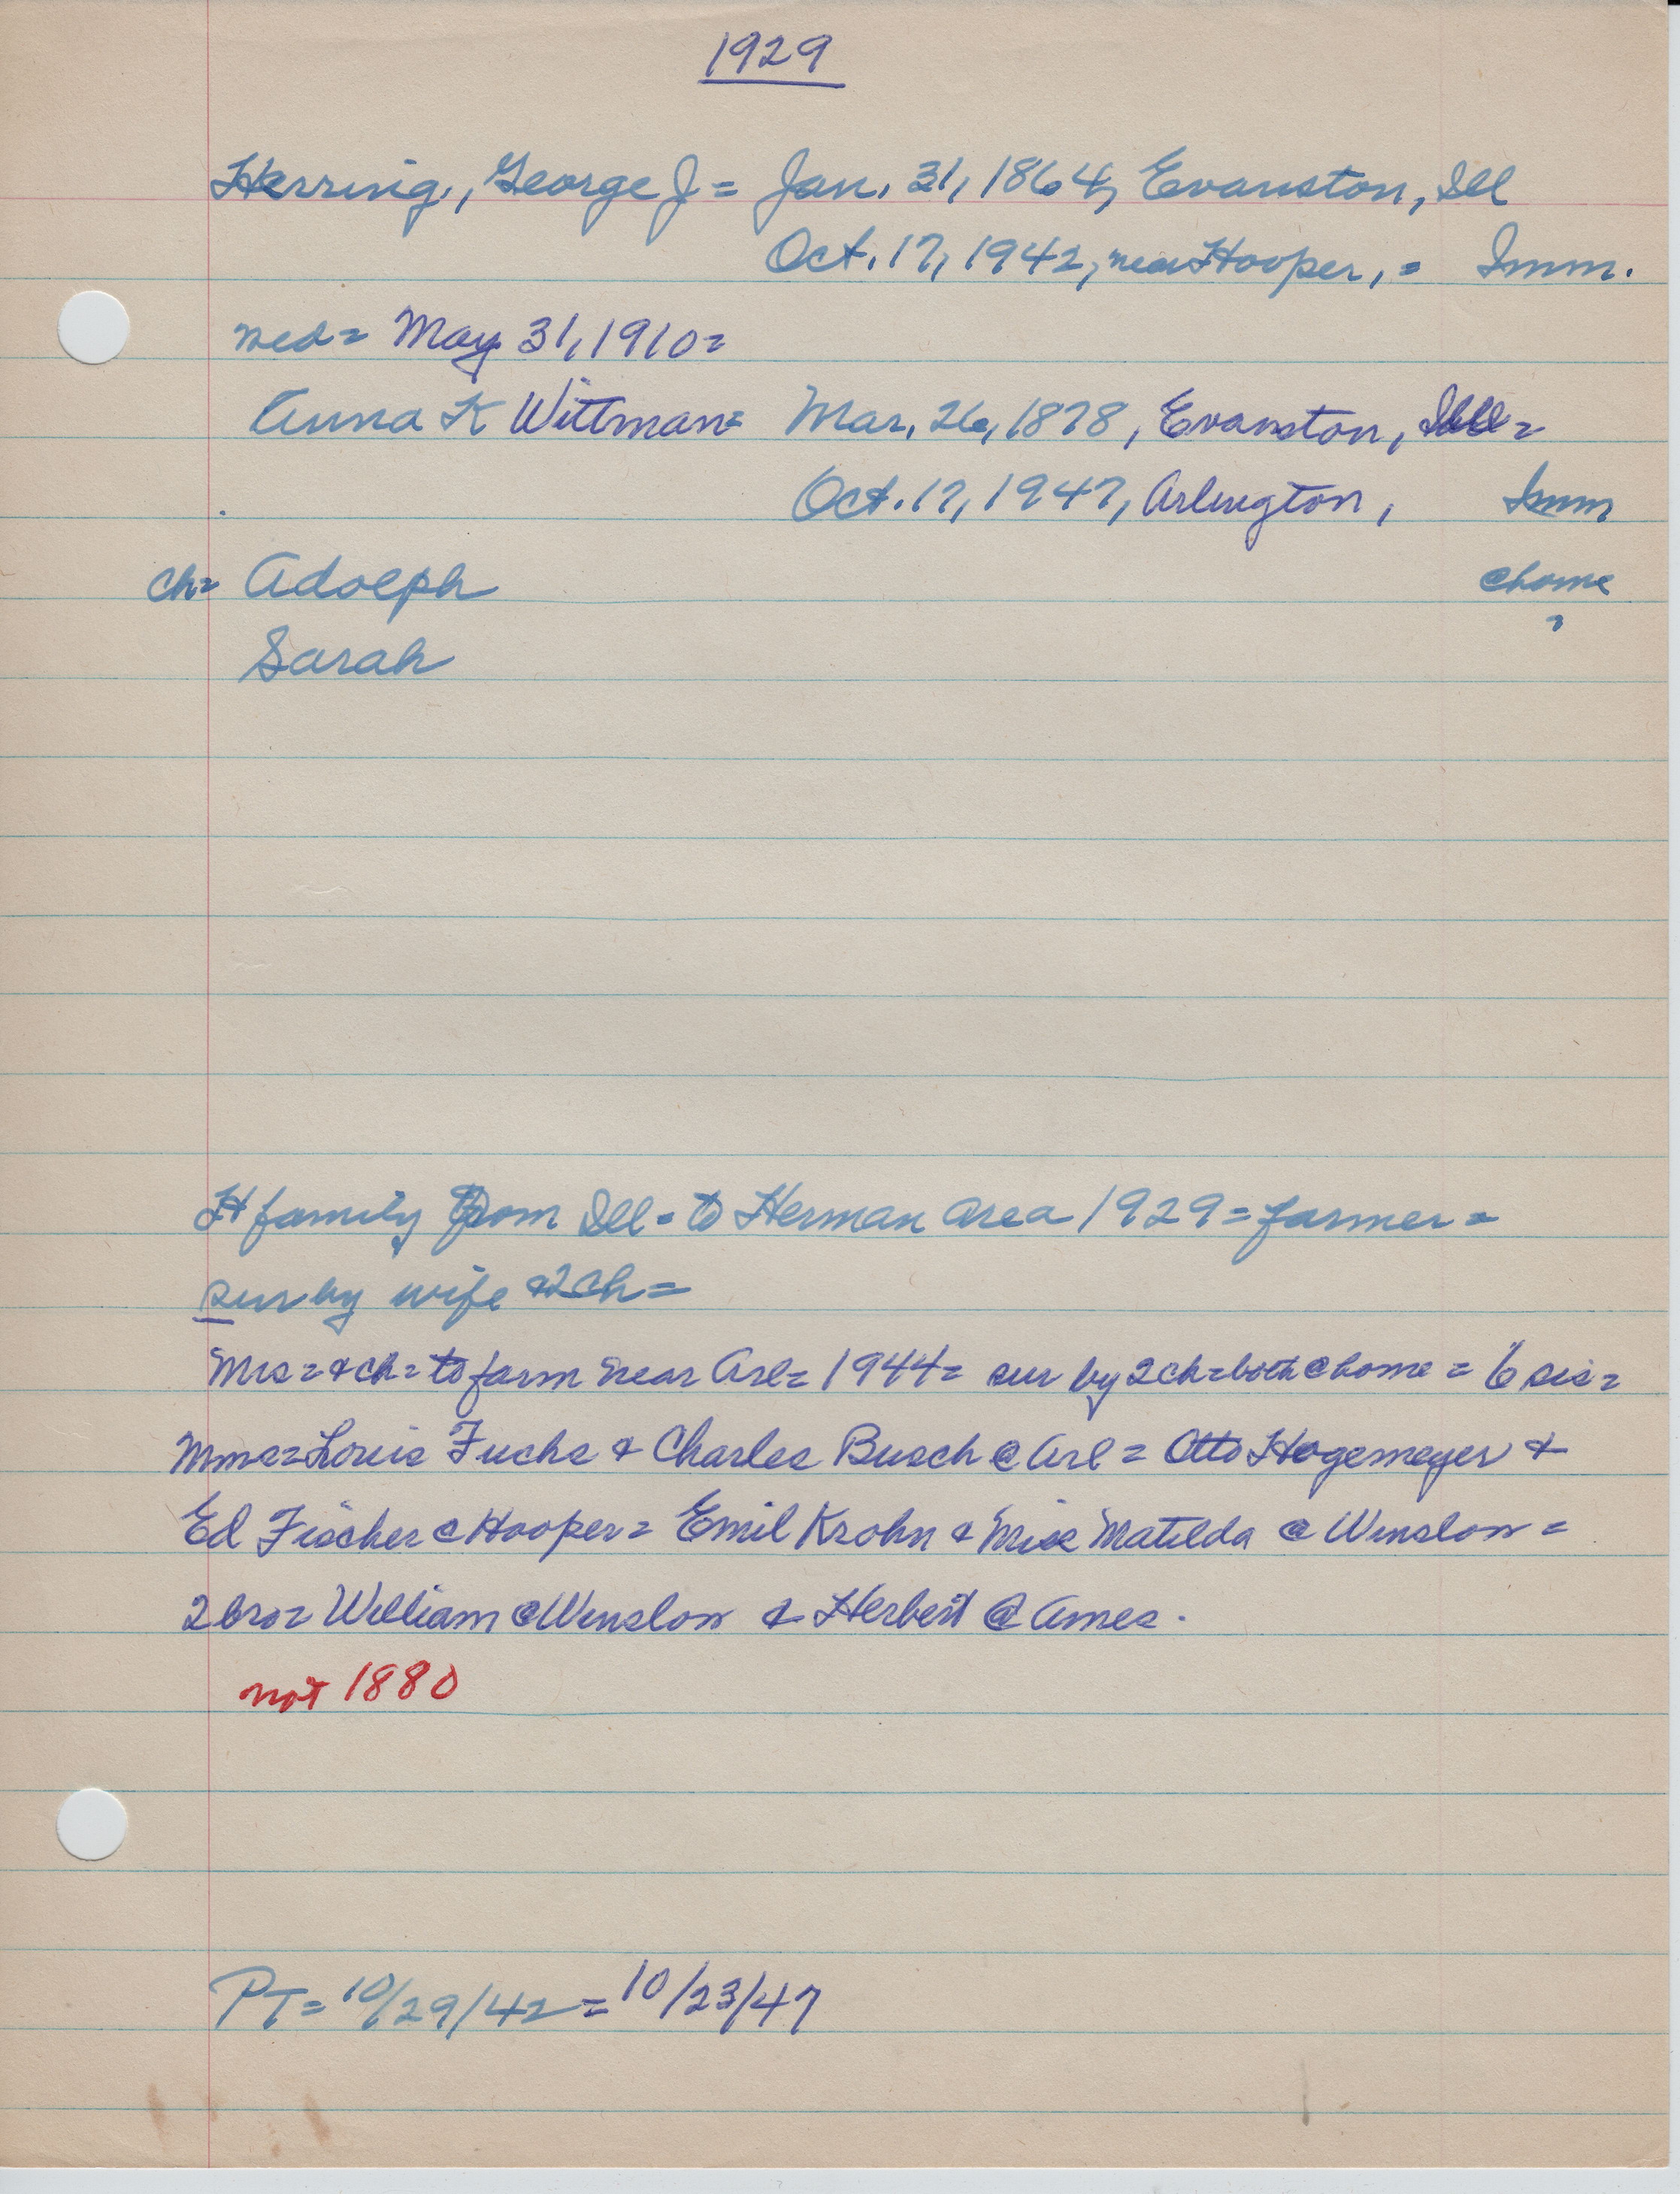 1929
Herring, George J = Jan. 31, 1864, Evanston, Ill
Oct. 17, 1942, near Hooper, = Imm.
wed = May 31, 1910 =
Anna K Wittman = Mar. 26, 1878, Evanston, Ill =
Oct. 17, 1947, Arlington, Imm
ch = Adolph @home
Sarah "
H family from Ill - to Herman area 1929 = farmer =
sur by wife & 2 ch =
Mrs = & ch = to farm near Arl = 1944 = sur by 2 ch = both @ home = 6 sis =
Mmes = Louis Fuchs & Charles Busch @ Arl = Otto Hogemeyer &
Ed Fischer @ Hooper = Emil Krohn & Miss Matilda @ Winslow =
2 bro = William @ Winslow & Herbert @ Ames.
not 1880
PT = 10/29/42 = 10/23/47